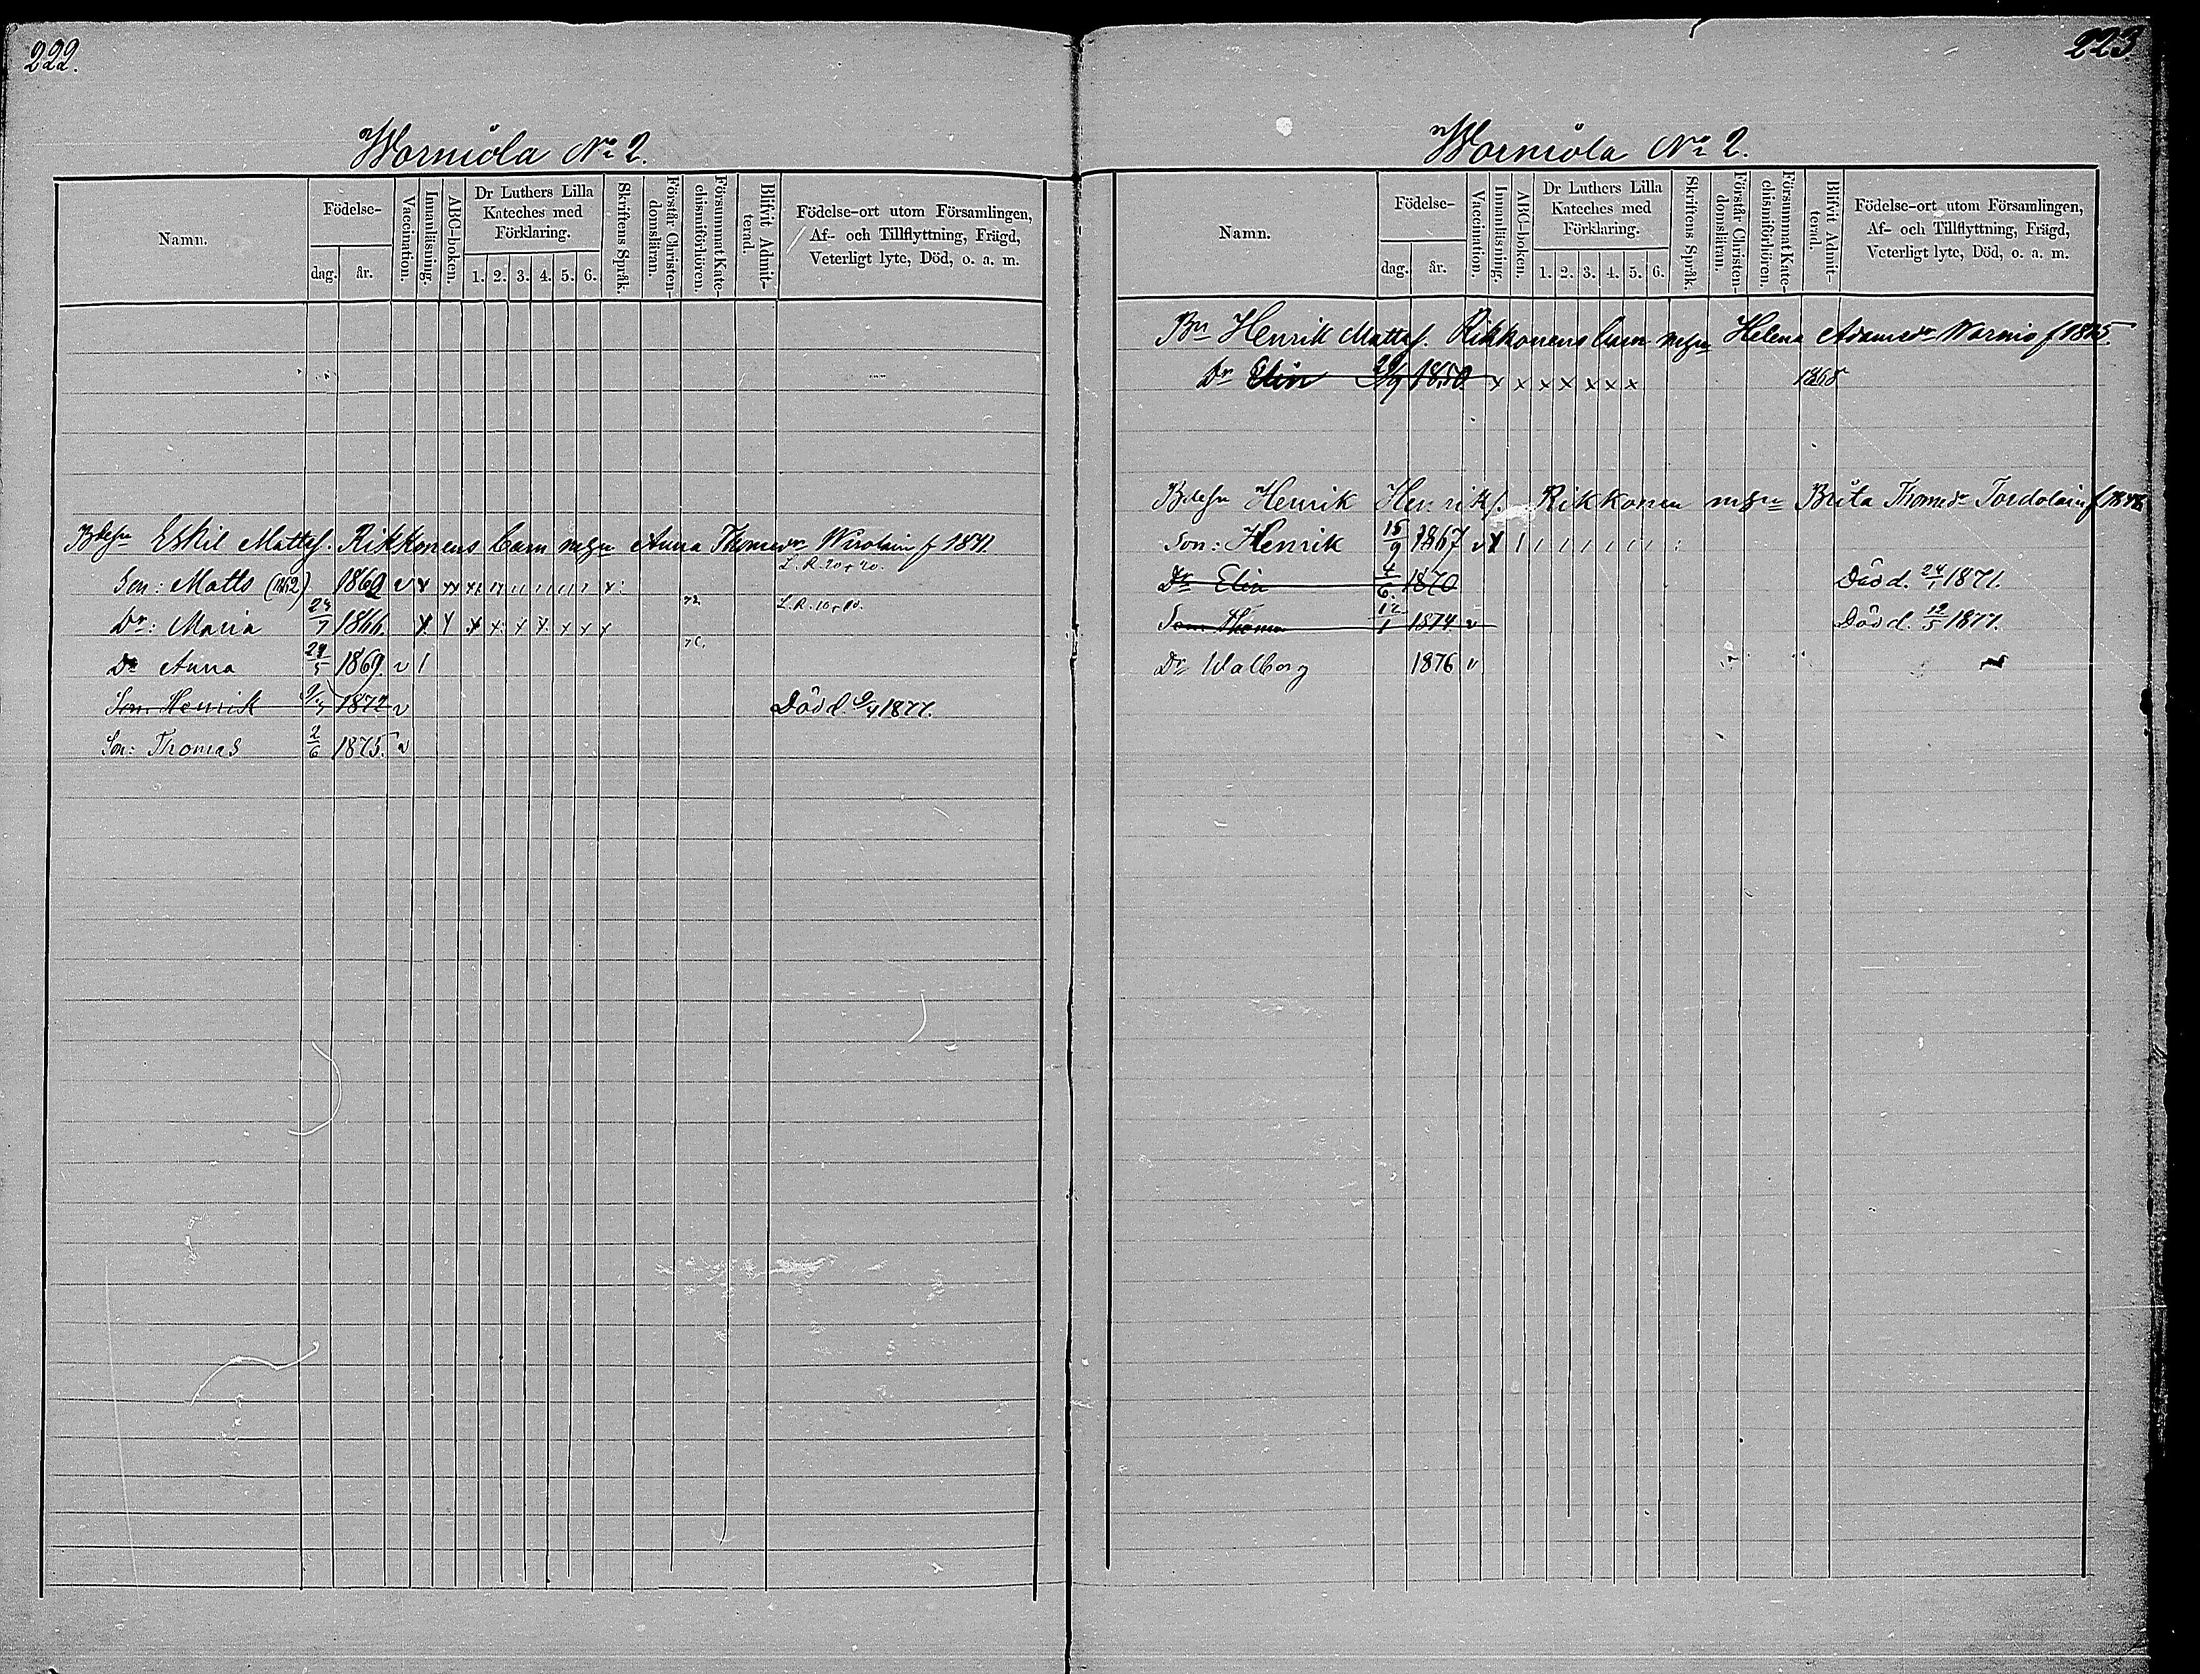 222.
Worniöla No 2.
Namn.
Födelse-
dag. år.
Vaccination.
Innanläsning.
ABC-boken.
Dr Luthers Lilla Kateches med Förklaring.
1. 2. 3. 4. 5. 6.
Skriftens Språk.
Förstår Christen-domsläran.
Försummat Kate-chismiförhören.
Blifvit Admit-terad.
Födelse-ort utom Församlingen,
Af- och Tillflyttning, Frägd,
Veterligt lyte, Död, o. a. m.
Eskil Mattsf. Rikkonens barn Anna Thomasdr f 1841.
L. R. 20 + 20.
Son: Matts (1862) 1862 v x xx xx xx 11 11 11 11 x:
Dr: Maria 24/7 1866. x x x x x x x x x 72 L. R. 10 + 10.
76.
Dr Anna 29/5 1869. v 1
Son Henrik 9/4 1872 v Död d. 9/4 1877.
Son: Thomas 2/6 1875. v
223.
Worniöla No 2.
Namn.
Födelse-
dag. år.
Vaccination.
Innanläsning.
ABC-boken.
Dr Luthers Lilla Kateches med Förklaring.
1. 2. 3. 4. 5. 6.
Skriftens Språk.
Förstår Christen-domsläran.
Försummat Kate-chismiförhören.
Blifvit Admit-terad.
Födelse-ort utom Församlingen,
Af- och Tillflyttning, Frägd,
Veterligt lyte, Död, o. a. m.
Bn Henrik Mattsf. Rikkonens barn Helena Adamsdr Wornio f 1825.
Dr Elin 1850 x x x x x x x 1868
Henrik Henriksf. Rikkonen Brita Thomasdr
Son: Henrik 15/9 1867 v x 1 1 1 1 1 1 1 :
Dr Elin 4/6. 1870 Död d. 24/1 1871.
Son Thomas 12/1 1874. v Död d. 12/5 1877.
Dr Walborg 1876 v